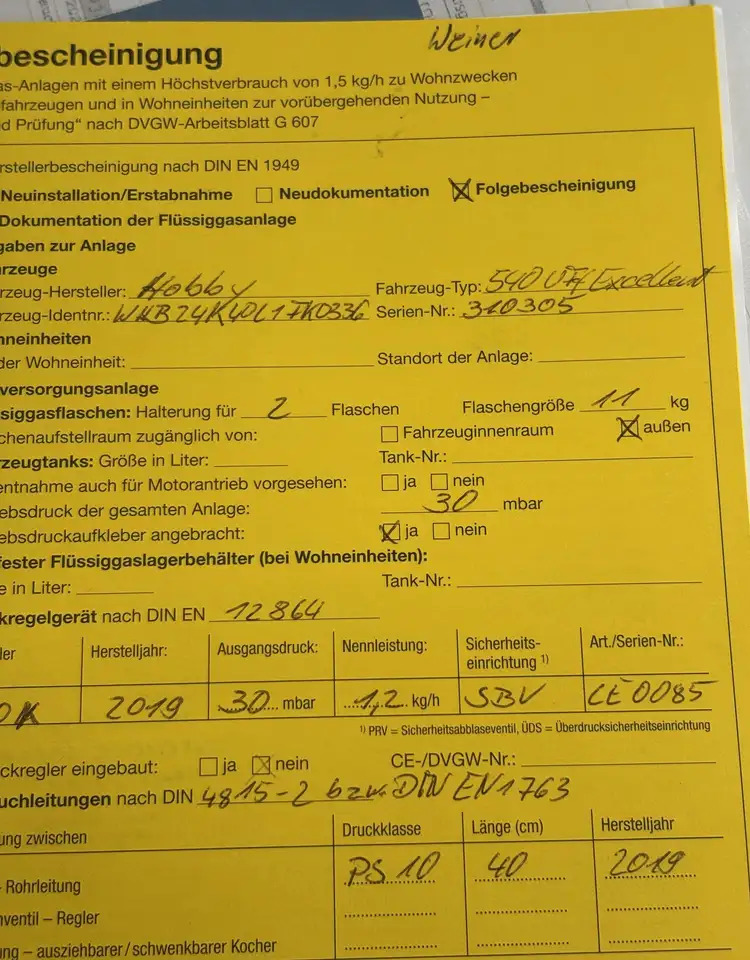 Weiner
bescheinigung
as-Anlagen mit einem Höchstverbrauch von 1,5 kg/h zu Wohnzwecken
fahrzeugen und in Wohneinheiten zur vorübergehenden Nutzung –
d Prüfung“ nach DVGW-Arbeitsblatt G 607
rstellerbescheinigung nach DIN EN 1949
Neuinstallation/Erstabnahme ☐ Neudokumentation ☒ Folgebescheinigung
Dokumentation der Flüssiggasanlage
gaben zur Anlage
rzeuge
rzeug-Hersteller: Hobby Fahrzeug-Typ: 540 Excellent
rzeug-Identnr.: Serien-Nr.: 310305
nneinheiten
der Wohneinheit: Standort der Anlage:
versorgungsanlage
ssiggasflaschen: Halterung für 2 Flaschen Flaschengröße 11 kg
chenaufstellraum zugänglich von: ☐ Fahrzeuginnenraum ☒ außen
rzeugtanks: Größe in Liter: Tank-Nr.:
entnahme auch für Motorantrieb vorgesehen: ☐ ja ☐ nein
ebsdruck der gesamten Anlage: 30 mbar
ebsdruckaufkleber angebracht: ☒ ja ☐ nein
fester Flüssiggaslagerbehälter (bei Wohneinheiten):
e in Liter: Tank-Nr.:
kregelgerät nach DIN EN 12864
ler Herstelljahr: Ausgangsdruck: Nennleistung: Sicherheits-einrichtung 1) Art./Serien-Nr.:
OK 2019 30 mbar 1,2 kg/h SBV CE 0085
1) PRV = Sicherheitsabblaseventil, ÜDS = Überdrucksicherheitseinrichtung
ckregler eingebaut: ☐ ja ☒ nein CE-/DVGW-Nr.:
uchleitungen nach DIN 4815-2 bzw. DIN EN 1763
ung zwischen Druckklasse Länge (cm) Herstelljahr
- Rohrleitung PS 10 40 2019
nventil – Regler
ng – ausziehbarer/schwenkbarer Kocher